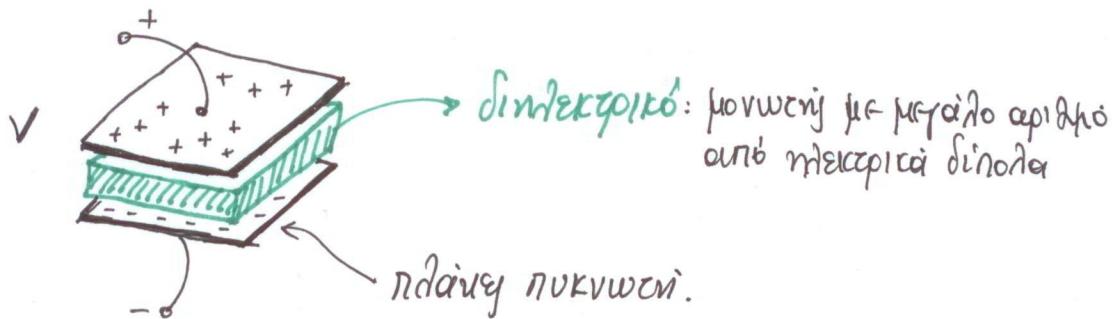 +
+ + + +
+
V
+ + + + + +
διηλεκτρικό: μονωτής με μεγάλο αριθμό
από ηλεκτρικά δίπολα
- - - - - -
πλάκες πυκνωτή.
-